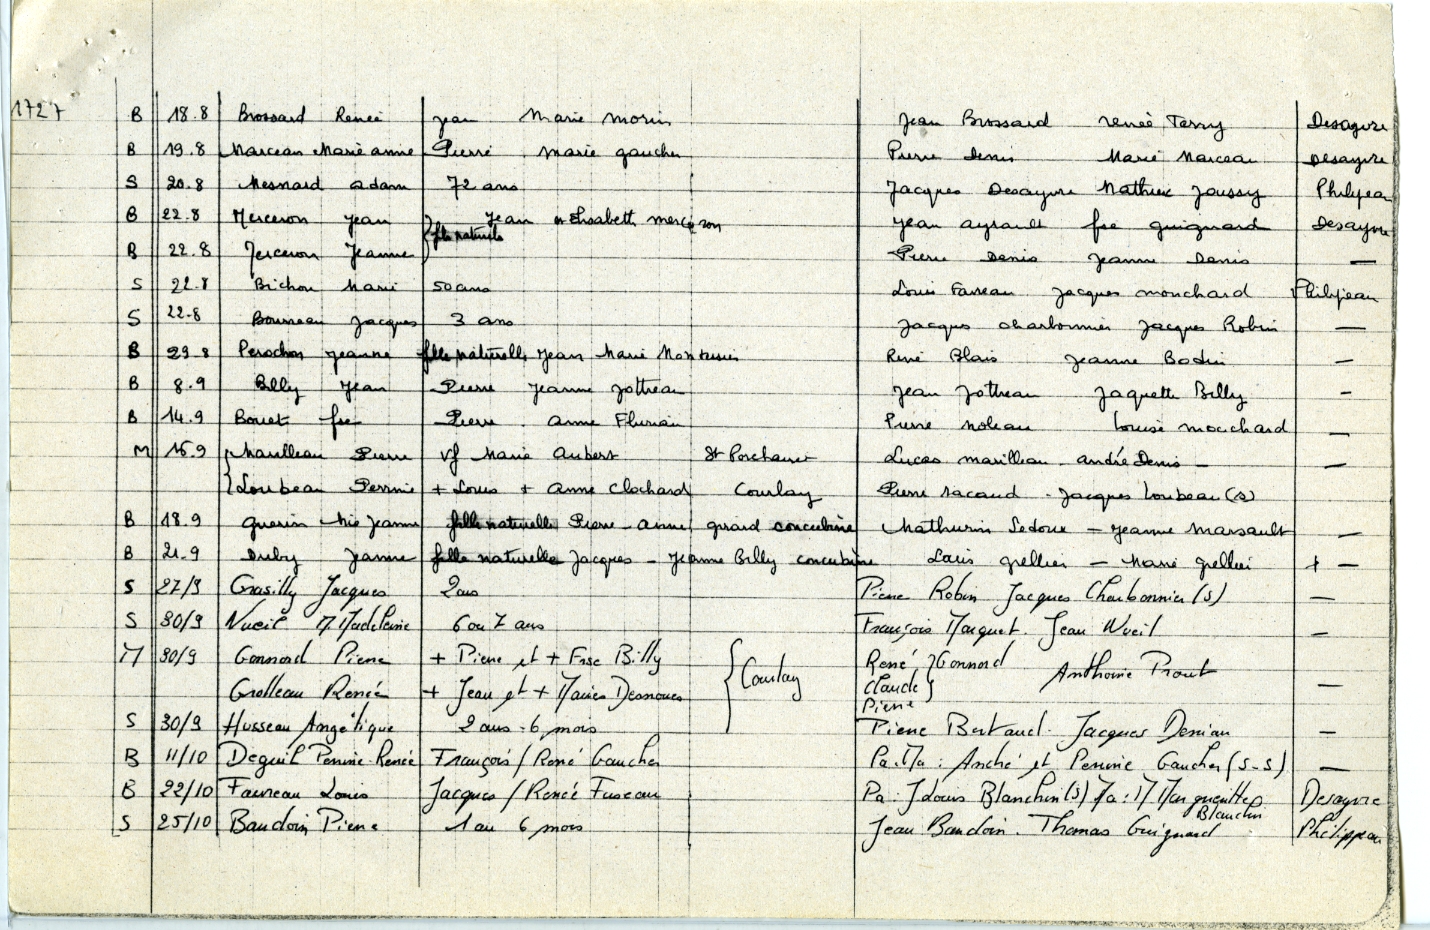 1727 B 18.8 Brossard Renée Jean Marie Morin Jean Brossard renée Terry Desayvre
B 19.8 Marceau Marie anne Pierre marie gaucher Pierre Denis Marie Marceau Desayvre
S 20.8 Mesnard adam 72 ans Jacques Desayvre Mathieu Joussy Philipeau
B 22.8 Merceron Jean Jean Elisabeth merceron Jean ayrault fse guignard Desayvre
B 22.8 Merceron Jeanne Pierre Denis Jeanne Denis —
S 22.8 Brichou Marie 50 ans Louis Jacques mouchard Philipeau
S 22.8 Bourreau Jacques 3 ans Jacques charbonnier Jacques Robin —
B 29.8 Perochon Jeanne fille naturelle Jean Marie René Blais Jeanne Bodin —
B 8.9 Billy Jean Pierre Jeanne Jottreau Jean Jottreau Jaquette Billy —
B 14.9 Bouet fse Pierre . anne Flurian Pierre noleau Louise mouchard —
M 16.9 Marilleau Pierre Vf Marie Aubert St Porchaire Lucas marilleau - andré Denis — —
Loubeau Perrine + Louis + anne clochard Courlay Pierre racaud - Jacques Loubeau (s)
B 18.9 guerin Mie Jeanne fille naturelle Pierre - anne girard concubine Mathurin Sedoux — Jeanne Marsault —
B 21.9 Jeanne fille naturelle Jacques - Jeanne Billy concubine Louis grellier — Marie grellier + —
S 27/9 Grasilly Jacques 2 ans Pierre Robin Jacques Charbonnier (s) —
S 30/9 Nueil M Madeleine 6 ou 7 ans François Marquet. Jean Nueil —
M 30/9 Gonnord Pierre + Pierre et + Frse Billy Courlay René Claude Pierre Gonnord Anthoine Prout
Grolleau Renée + Jean et + Maries Desnoues —
S 30/9 Husseau Angélique 2 ans - 6 mois Pierre Bertaud. Jacques Denian —
B 11/10 Deguil Perrine Renée François / René Gaucher Pa. Ma : André et Perrine Gaucher (s-s) —
B 22/10 Louis Jacques / Renée Fuseau Pa : J Louis Blanchin (s) Ma : M Marguerittes Blanchin Desayvre
S 25/10 Baudoin Pierre 1 an 6 mois Jean Baudoin. Thomas Guignard Philippeau